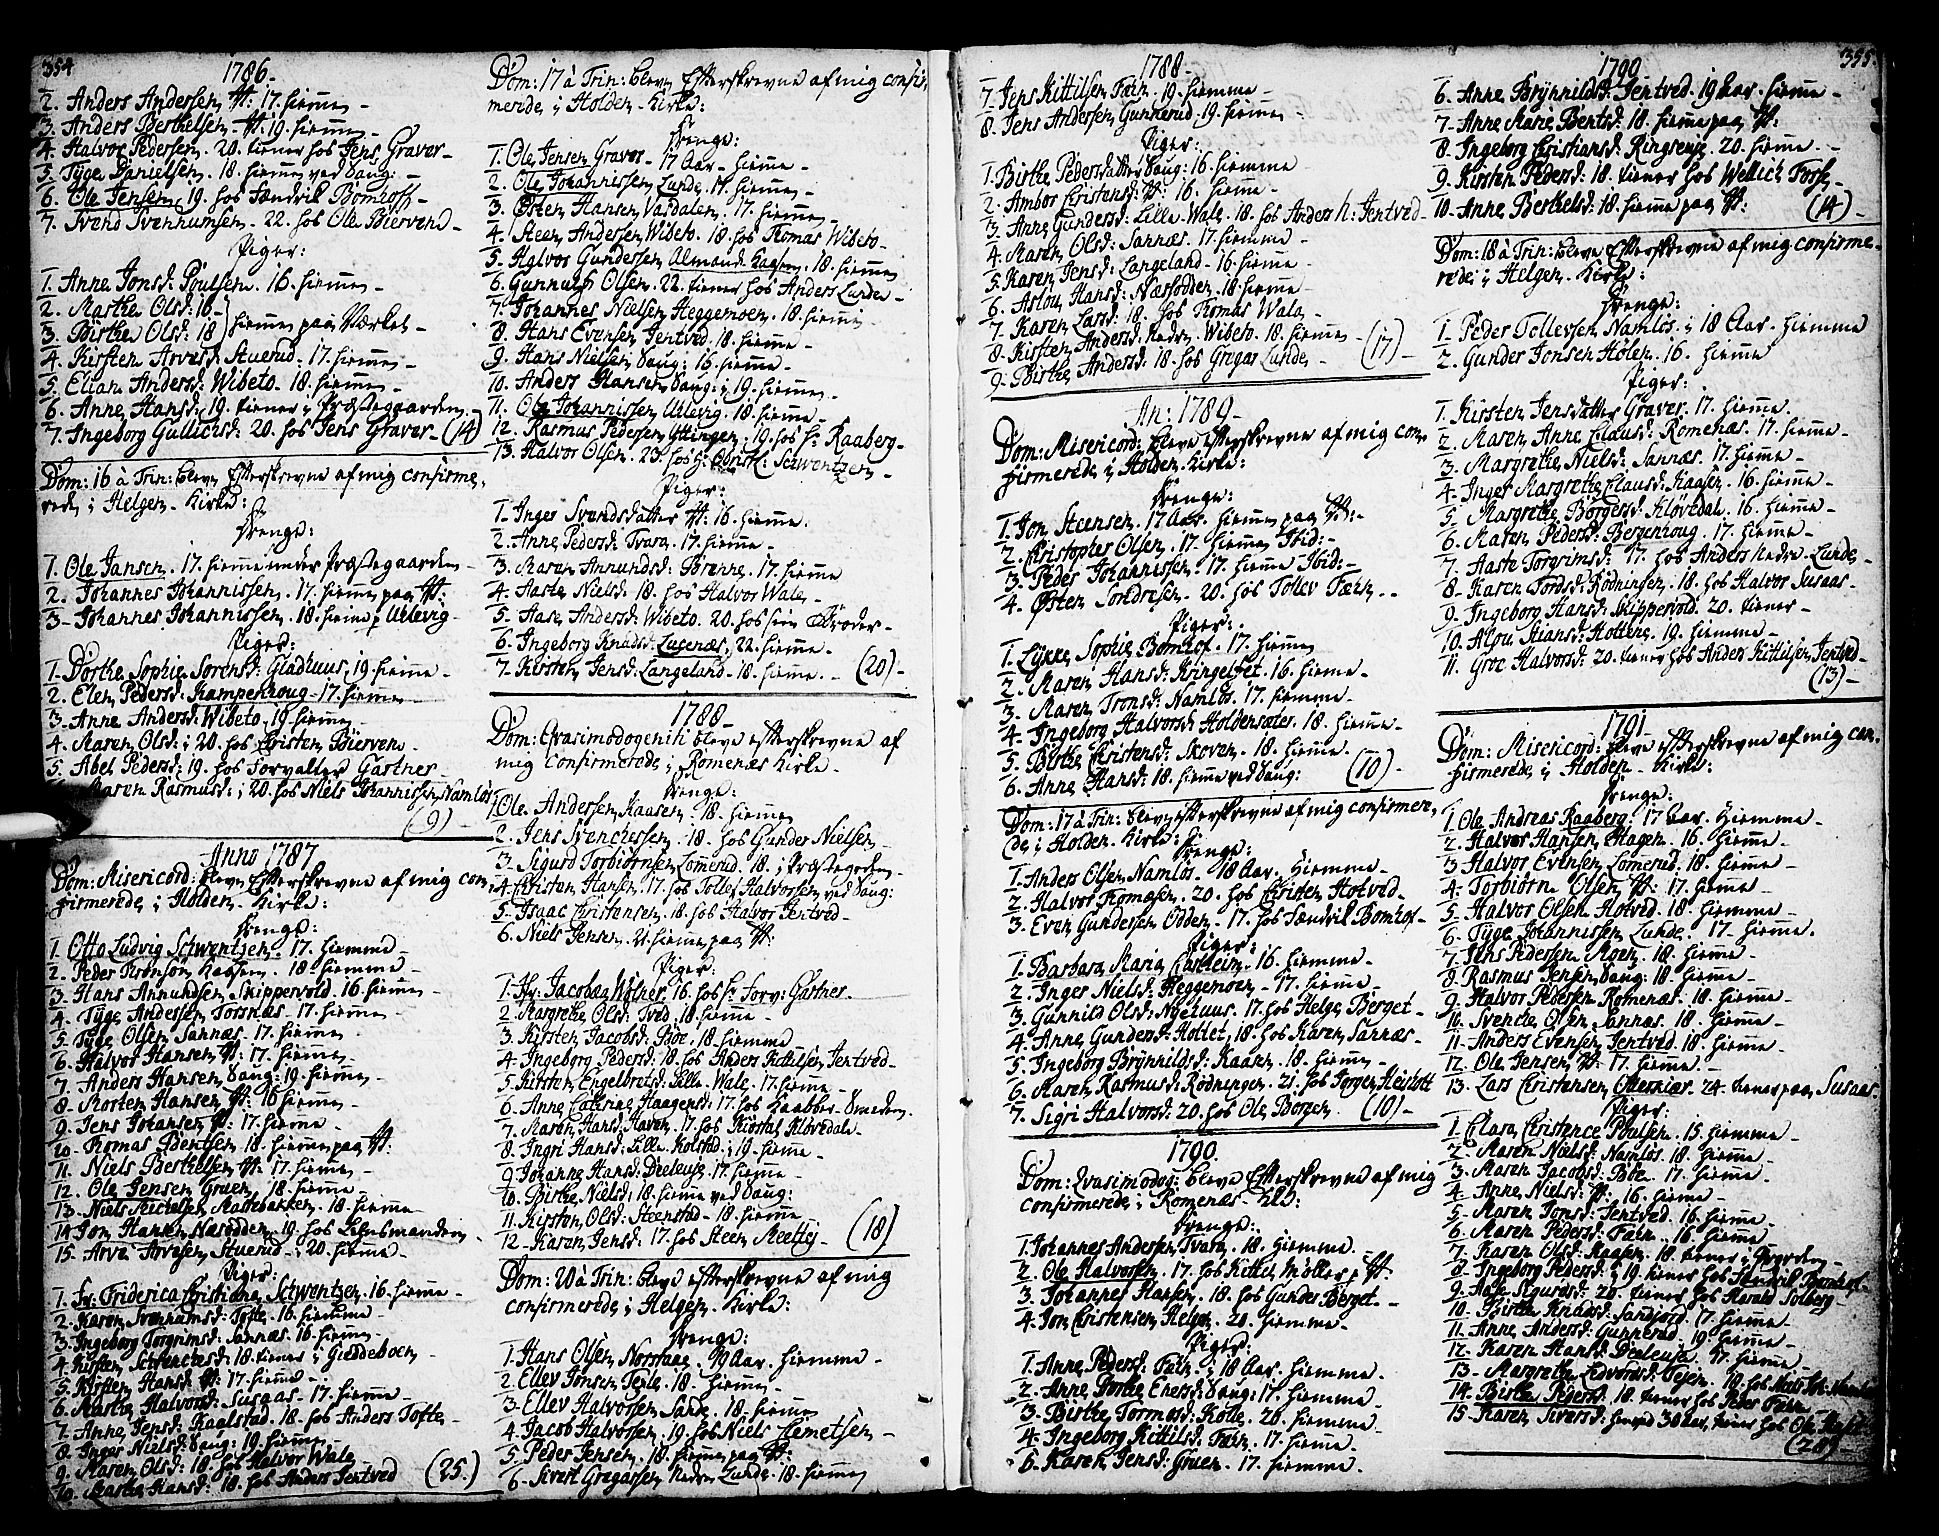 354
1786.
2. Anders Andersen W: 17. hiemme
3. Anders Berthelsen. W: 19. hiemme
4. Halvor Pedersen. 20. tiener hos Jens Graver
5. Tyge Danielsen. 18. hiemme ved Saug:
6. Ole Jensen, 19. hos Fændrik Bomhoff
7. Svend Svenkumsen. 22. hos Ole Bierven
Piger:
1. Anne Jonsd: Poulsen. 16. hiemme
2. Marthe Olsd: 16
3. Birthe Olsd: 18 hiemme paa Værket
4. Kirsten Arvesd: Stuerud. 17. hiemme
5. Elian Andersd: Wibeto. 18. hiemme
6. Anne Hansd: 19. tiener i Præstegaarden
7. Ingeborg Gullichsd: 20. hos Jens Graver (14)
Dom: 16 à Trin: bleve Efterskrevne af mig confirme-
rede i Helgen Kirke:
Drenge:
1. Ole Jansen. 17. hiemme under Præstegaarden
2. Johannes Johannissen. 17. hiemme paa W:
3. Johannes Johannissen. 18. hiemme p Ullevig
Piger:
1. Dorthe Sophie Sørensd: Gladhuus, 19. hiemme
2. Elen Pedersd: Kampenhoug. 17. hiemme
3. Anne Andersd: Wibeto. 19. hiemme
4. Maren Olsd: i 20. hos Christen Bierven
5. Abel Pedersd: 19. hos Forvalter Gartner
Maren Rasmusd: i 20. hos Niels Johannissen Namløs
(9)
Anno 1787
Dom: Misericord: bleve Efterskrevne af mig con-
firmerede i Holden Kirke:
Drenge:
1. Otto Ludvig Schwentzen. 17. hiemme
2. Peder Tronson Kaasen. 18. hiemme
3. Hans Annundsen Skippervold. 16. hiemme
4. Tyge Andersen Torsnæs. 17. hiemme
5. Tyge Olsen Sannæs. 17. hiemme
6. Halvor Hansen W: 17. hiemme
7. Anders Hansen Saug: 19. hiemme
8. Morten Hansen W: 16 hiemme
9. Jens Johansen W: 17. hiemme
10. Thomas Bentsen 18. hiemme paa W:
11. Niels Berthelsen W: 17. hiemme
12. Ole Jensen Gruen. 18. hiemme
13. Niels Michelsen Mattebakken. 18. hiemme
14. Jon Hansen Næsodden. 19. hos Lensmanden
15. Arve Arvesen Stuerud. 20. hiemme
Piger:
1. Fr: Friderica Christiana Schwentzen. 16. hiemme
2. Karen Svenkumsd: Tofte. 16. hiemme
3. Ingeborg Torgrimsd: Sannæs. 16. hiemme
4. Kirsten Schvenchesd: 18. tiener i Gieddeboen
5. Kirsten Hansd: W: 17. hiemme
6. Marthe Halvorsd: Susaas. 17. hiemme
7. Anne Jensd: Kaalstad. 18. hos Anders Tofte
8. Inger Nielsd: Saug: 19. hiemme
9. Maren Olsd: 18. hos Halvor Wale
10. Marthe Hansd: 18. hos Anders Jentved (25.)
Dom: 17 à Trin: bleve Efterskrevne af mig confir-
merede i Holden Kirke:
Drenge:
1. Ole Jensen Graver. 17 Aar. hiemme
2. Ole Johannissen Lunde. 17. hiemme
3. Østen Hansen Vasdalen. 17. hiemme
4. Steen Andersen Wibeto. 18. hos Thomas Wibeto
5. Halvor Gundersen Almand Kaasen. 18. hiemme
6. Gunnulf Olsen. 22. tiener hos Anders Lunde
7. Johannes Nielsen Heggemoen. 18. hiemme
8. Hans Evensen Jentved. 18. hiemme
9. Hans Nielsen Saug: 16. hiemme
10. Anders Hansen Saug: 19. hiemme
11. Ole Johannissen Ullevig. 18. hiemme
12. Rasmus Pedersen Yttingen. 19. hos Hr: Raaberg
13. Halvor Olsen. 23. hos Hr: Obristl: Schwentzen
Piger:
1. Inger Svendsdatter W: 16. hiemme.
2. Anne Pedersd: Tvara. 17. hiemme
3. Maren Annundsd: Brenne. 17. hiemme
4. Aaste Nielsd: 18. hos Halvor Wale
5. Aase Andersd: Wibeto. 20. hos sin Broder
6. Ingeborg Knudsd: Lucenæs, 22. hiemme
7. Kirsten Jensd: Langeland. 18. hiemme. (20)
1788
Dom: Qvasimodogeniti bleve efterskrevne af
mig confirmerede i Romenæs Kirke
Drenge:
1. Ole Andersen Kaasen. 18. hiemme
2. Jens Svenchessen. 18. hos Gunder Nielsen
3. Sigurd Torbiørnsen Lomerud. 18. i Præstegorden
4. Christen Hansen. 17. hos Tollef Halvorsen ved Saug:
5. Isaac Christensen. 18. hos Halvor Jentved
6. Niels Jensen. 21. hiemme paa W:
Piger:
1. Fr: Jacobæa Wølner. 16. hos Hr Forv: Gartner.
2. Margrethe Olsd: Tved. 18. hiemme
3. Kirsten Jacobsd: Bøe. 18. hiemme
4. Ingeborg Pedersd: 18. hos Anders Kittilsen Jentved
5. Kirsten Engelbretsd: Lille Wale. 17. hiemme
6. Anne Cathrine Haagensd: 17. hos Kaabber Smeden
7. Maren Hansd: Haven. 17. hos Kiøstel Kløvedale
8. Ingri Hansd: Lille Kolstad, 19. hiemme
9. Johanne Hansd: Deeleuse. 17. hiemme
10. Birthe Nielsd: 18. hiemme ved Saug:
11. Kirsten Olsd: Steenstad. 18. hiemme
12. Karen Jensd: 17. hos Steen Meettej (18)
Dom: 20 à Trin: bleve efterskrevne af mig
confirmerede i Helgen Kirke:
Drenge:
1. Hans Olsen Norstuen. 19 Aar. hiemme
2. Ellev Jonsen Teyle. 18. hiemme
3. Ellev Halvorsen Sande. 18. hiemme
4. Jacob Halvorsen. 19. hos Niels Clemetsen
5. Peder Jensen. 18. hiemme paa W:
6. Sivert Gregarsen Nedre Lunde. 18. hiemme
1788
7. Jens Kittilsen Færn. 19. hiemme
8. Jens Andersen Gunnerud. 19. hiemme
Piger:
1. Birthe Pedersdatter Saug: 16. hiemme
2. Ambor Christensd: W: 16. hiemme
3. Anne Gundersd: Lille Wale. 18. hos Anders H: Jentved
4. Maren Olsd: Sannæs. 17. hiemme
5. Karen Jensd: Langeland. 16. hiemme
6. Aslou Hansd: Næsodden. 18. hiemme
7. Karen Larsd: 18. hos Thomas Wale
8. Kirsten Andersd: Nedre Wibeto. 18. hiemme (17)
9. Birthe Andersd: 18. hos Gregar Lunde
An: 1789
Dom: Misericord: bleve efterskrevne af mig con-
firmerede i Holden Kirke:
Drenge:
1. Jon Steensen. 17 Aar. hiemme paa W:
2. Christopher Olsen. 17. hiemme Ibid:
3. Peder Johannissen. 17. hiemme Ibid:
4. Østen Sondresen. 20. hos Tollev Færn
Piger:
1. Lykke Sophie Bomhof. 17. hiemme
2. Maren Hansd: Kringelfet. 16. hiemme
3. Maren Tronsd: Namløs. 17. hiemme
4. Ingeborg Halvorsd: Holdensæter. 18. hiemme
5. Birthe Christensd: Skoven. 18. hiemme
6. Anne Hansd: 18. hiemme ved Saug: (10)
Dom: 17 à Trin: bleve efterskrevne af mig confirmere-
de i Holden Kirke:
Drenge:
1. Anders Olsen Namløs. 18 Aar. hiemme
2. Halvor Thomæsen. 20. hos Christen Hotved
3. Even Gundersen Odden. 17. hos Fændrik Bomhof
Piger:
1. Barbara Maria Casteein. 16. hiemme
2. Inger Nielsd: Heggemoen. 17. hiemme
3. Gunnild Olsd: Nyehuus. 17. hos Helge Berget
4. Anne Gundersd: Hottet. 18. hos Karen Sannæs
5. Ingeborg Brynnildsd: Kaasen. 18. hiemme
6. Maren Rasmusd: Rødningen. 21. hos Jørgen Heistolt
7. Sigri Halvorsd: 20. hos Ole Borgen. (10)
1790
Dom: Qvasimodog: bleve Efterskrevne af mig
confirmerede i Romenæs Kl:
Drenge:
1. Johannes Andersen Tvara. 18. hiemme
2. Ole Halvorsen. 17. hos Kittel Møller p W:
3. Johannes Hansen. 18. hos Gunder Berget
4. Jon Christensen Helgen. 20. hiemme
Piger:
1. Anne Pedersd: Færn. i 18 Aar. hiemme
2. Anne Dorthe Enersd: Saug: 17. hiemme
3. Birthe Tormosd: Kolle. 20. hiemme
4. Ingeborg Kittilsd: Færn. 17. hiemme
5. Karen Jensd: Gruen. 17. hiemme.
1790
355.
6. Anne Brynnildsd: Jentved. 19 Aar. hiemme
7. Anne Marie Bentsd: 18. hiemme paa W:
8. Ingeborg Christiansd: Ringseije. 20. hiemme
9. Kirsten Pedersd: 18. tiener hos Wellich Forse
10. Anne Berthelsd: 18. hiemme paa W: (14)
Dom: 18 à Trin: bleve Efterskrevne af mig confirme-
rede i Helgen Kirke:
Drenge:
1. Peder Tollevsen Namløs. i 18 Aar. hiemme
2. Gunder Jonsen Holen. 16. hiemme
Piger:
1. Kirsten Jensdatter Graver. 17. hiemme.
2. Maren Anne Clausd: Romenæs. 17. hiemme
3. Margrethe Nielsd: Sannæs. 17. hiemme
4. Inger Margrethe Clausd: Kaasen. 16. hiemme
5. Margrethe Børgersd: Kløvedal. 16. hiemme
6. Maren Pedersd: Bergenhoug. 17. hiemme
7. Aaste Torgrimsd: 17. hos Anders Nedre Lunde
8. Karen Tordsd: Rødningen. 18. hos Halvor Susaas
9. Ingeborg Hansd: Skippervold. 20. tiener
10. Aslou Stiansd: Holtene. 19. hiemme
11. Groe Halvorsd: 20. tiener hos Anders Kittilsen Jentved
(13)
1791
Dom: Misericord: bleve efterskrevne af mig con-
firmerede i Holden Kirke:
Drenge:
1. Ole Andreas Raaberg. 17 Aar. hiemme
2. Halvor Hansen Hagen. 16. hiemme
3. Halvor Evensen Lomerud. 18. hiemme
4. Torbiørn Olsen W: 17. hiemme
5. Halvor Olsen Hotved. 18. hiemme
6. Tyge Johannissen Lunde. 17. hiemme.
7. Jens Pedersen Moen. 18. hiemme
8. Rasmus Jensen Saug: 18. hiemme
9. Halvor Pedersen Romenæs. 18. hiemme
10. Svenche Olsen Sannæs. 18. hiemme
11. Anders Evensen Jentved. 18. hiemme
12. Ole Jensen W: 17. hiemme
13. Lars Christensen Otterkiær. 24. tiener paa Susaas
Piger:
1. Clara Christence Poulsen. 15. hiemme
2. Maren Nielsd: Namløs. 18. hiemme
3. Maren Jacobsd: Bøe. 17. hiemme
4. Anne Nielsd: W: 16. hiemme
5. Maren Jonsd: Jentved. 16. hiemme
6. Maren Pedersd: Færn. 16. hiemme
7. Karen Olsd: Kaasen. 18. tiener i Pgorden
8. Ingeborg Pedersd: i 19. tiener hos Fændrik Bomhof
9. Aase Sigursd: 20. tiener hos Harald Solberg
10. Birthe Knudsd: Sandjord. 17. hiemme
11. Anne Andersd: Gunnerud. 19. hiemme
12. Karen Hansd: Deeleuse. 17. hiemme
13. Margrethe Ledvorsd: Teisen. 18. hos Niels Joh: Namløs
14. Birthe Pedersd: 18. tiener hos Peder Færn
15. Karen Siversd: henved 30 Aar, tiener hos Ole
(28)